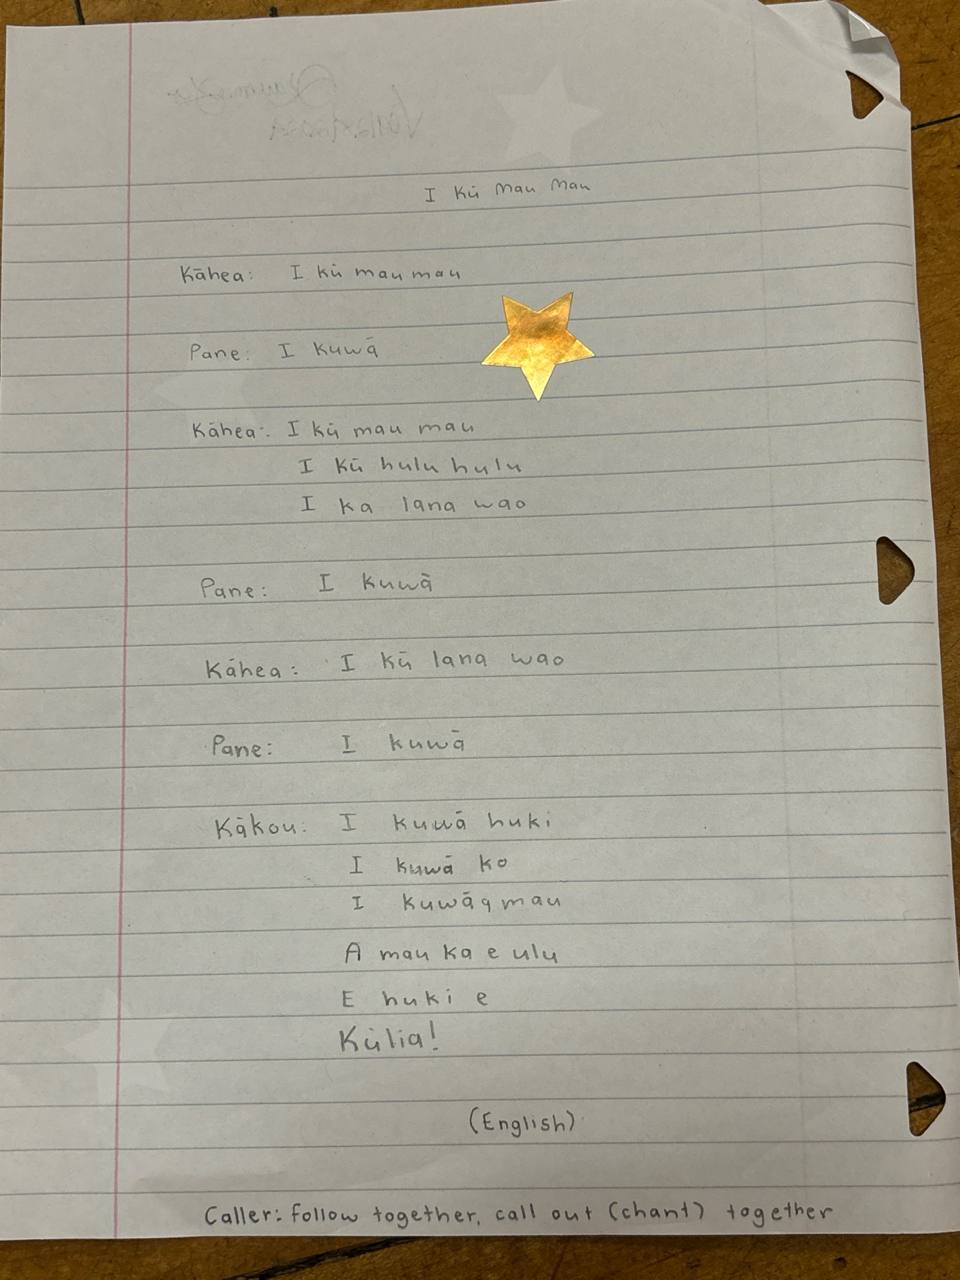 I Kū Mau Mau
Kāhea: I kū mau mau
Pane: I Kuwā
Kāhea: I kū mau mau
I kū hulu hulu
I ka lana wao
Pane: I kuwā
Kāhea: I kū lana wao
Pane: I kuwā
Kākou: I kuwā huki
I kuwā ko
I kuwā a mau
A mau ka e ulu
E huki e
Kūlia!
(English)
Caller: follow together, call out (chant) together